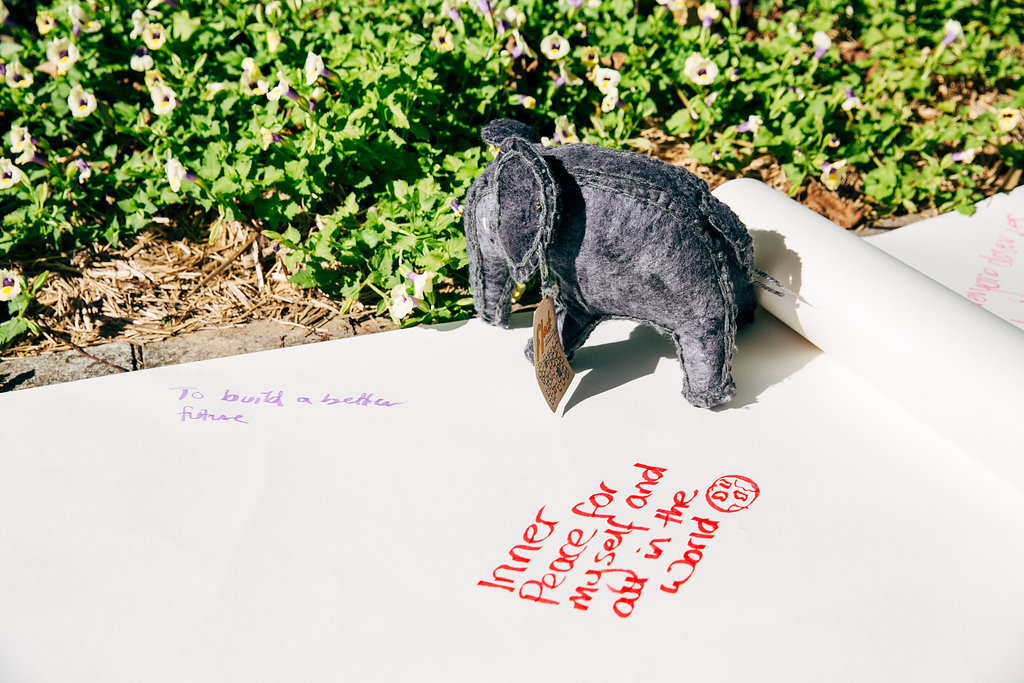 To build a better
future
Inner
Peace for
myself and
all in the
World